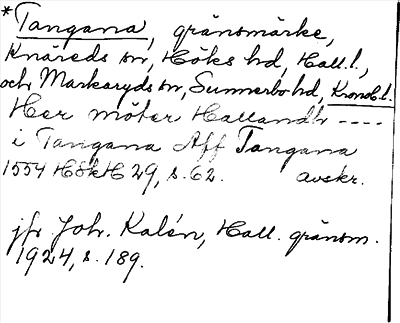 *Tangana, gränsmärke,
Knäreds sn, Höks hd, Hall.l.,
och Markaryds sn, Sunnerbo hd, Kronob.l.
Her möter Hallandh ----
i Tangana Aff Tangana
1554 HSkH 29, s. 62. avskr.
jfr Joh. Kalén, Hall. gränsm.
1924, s. 189.